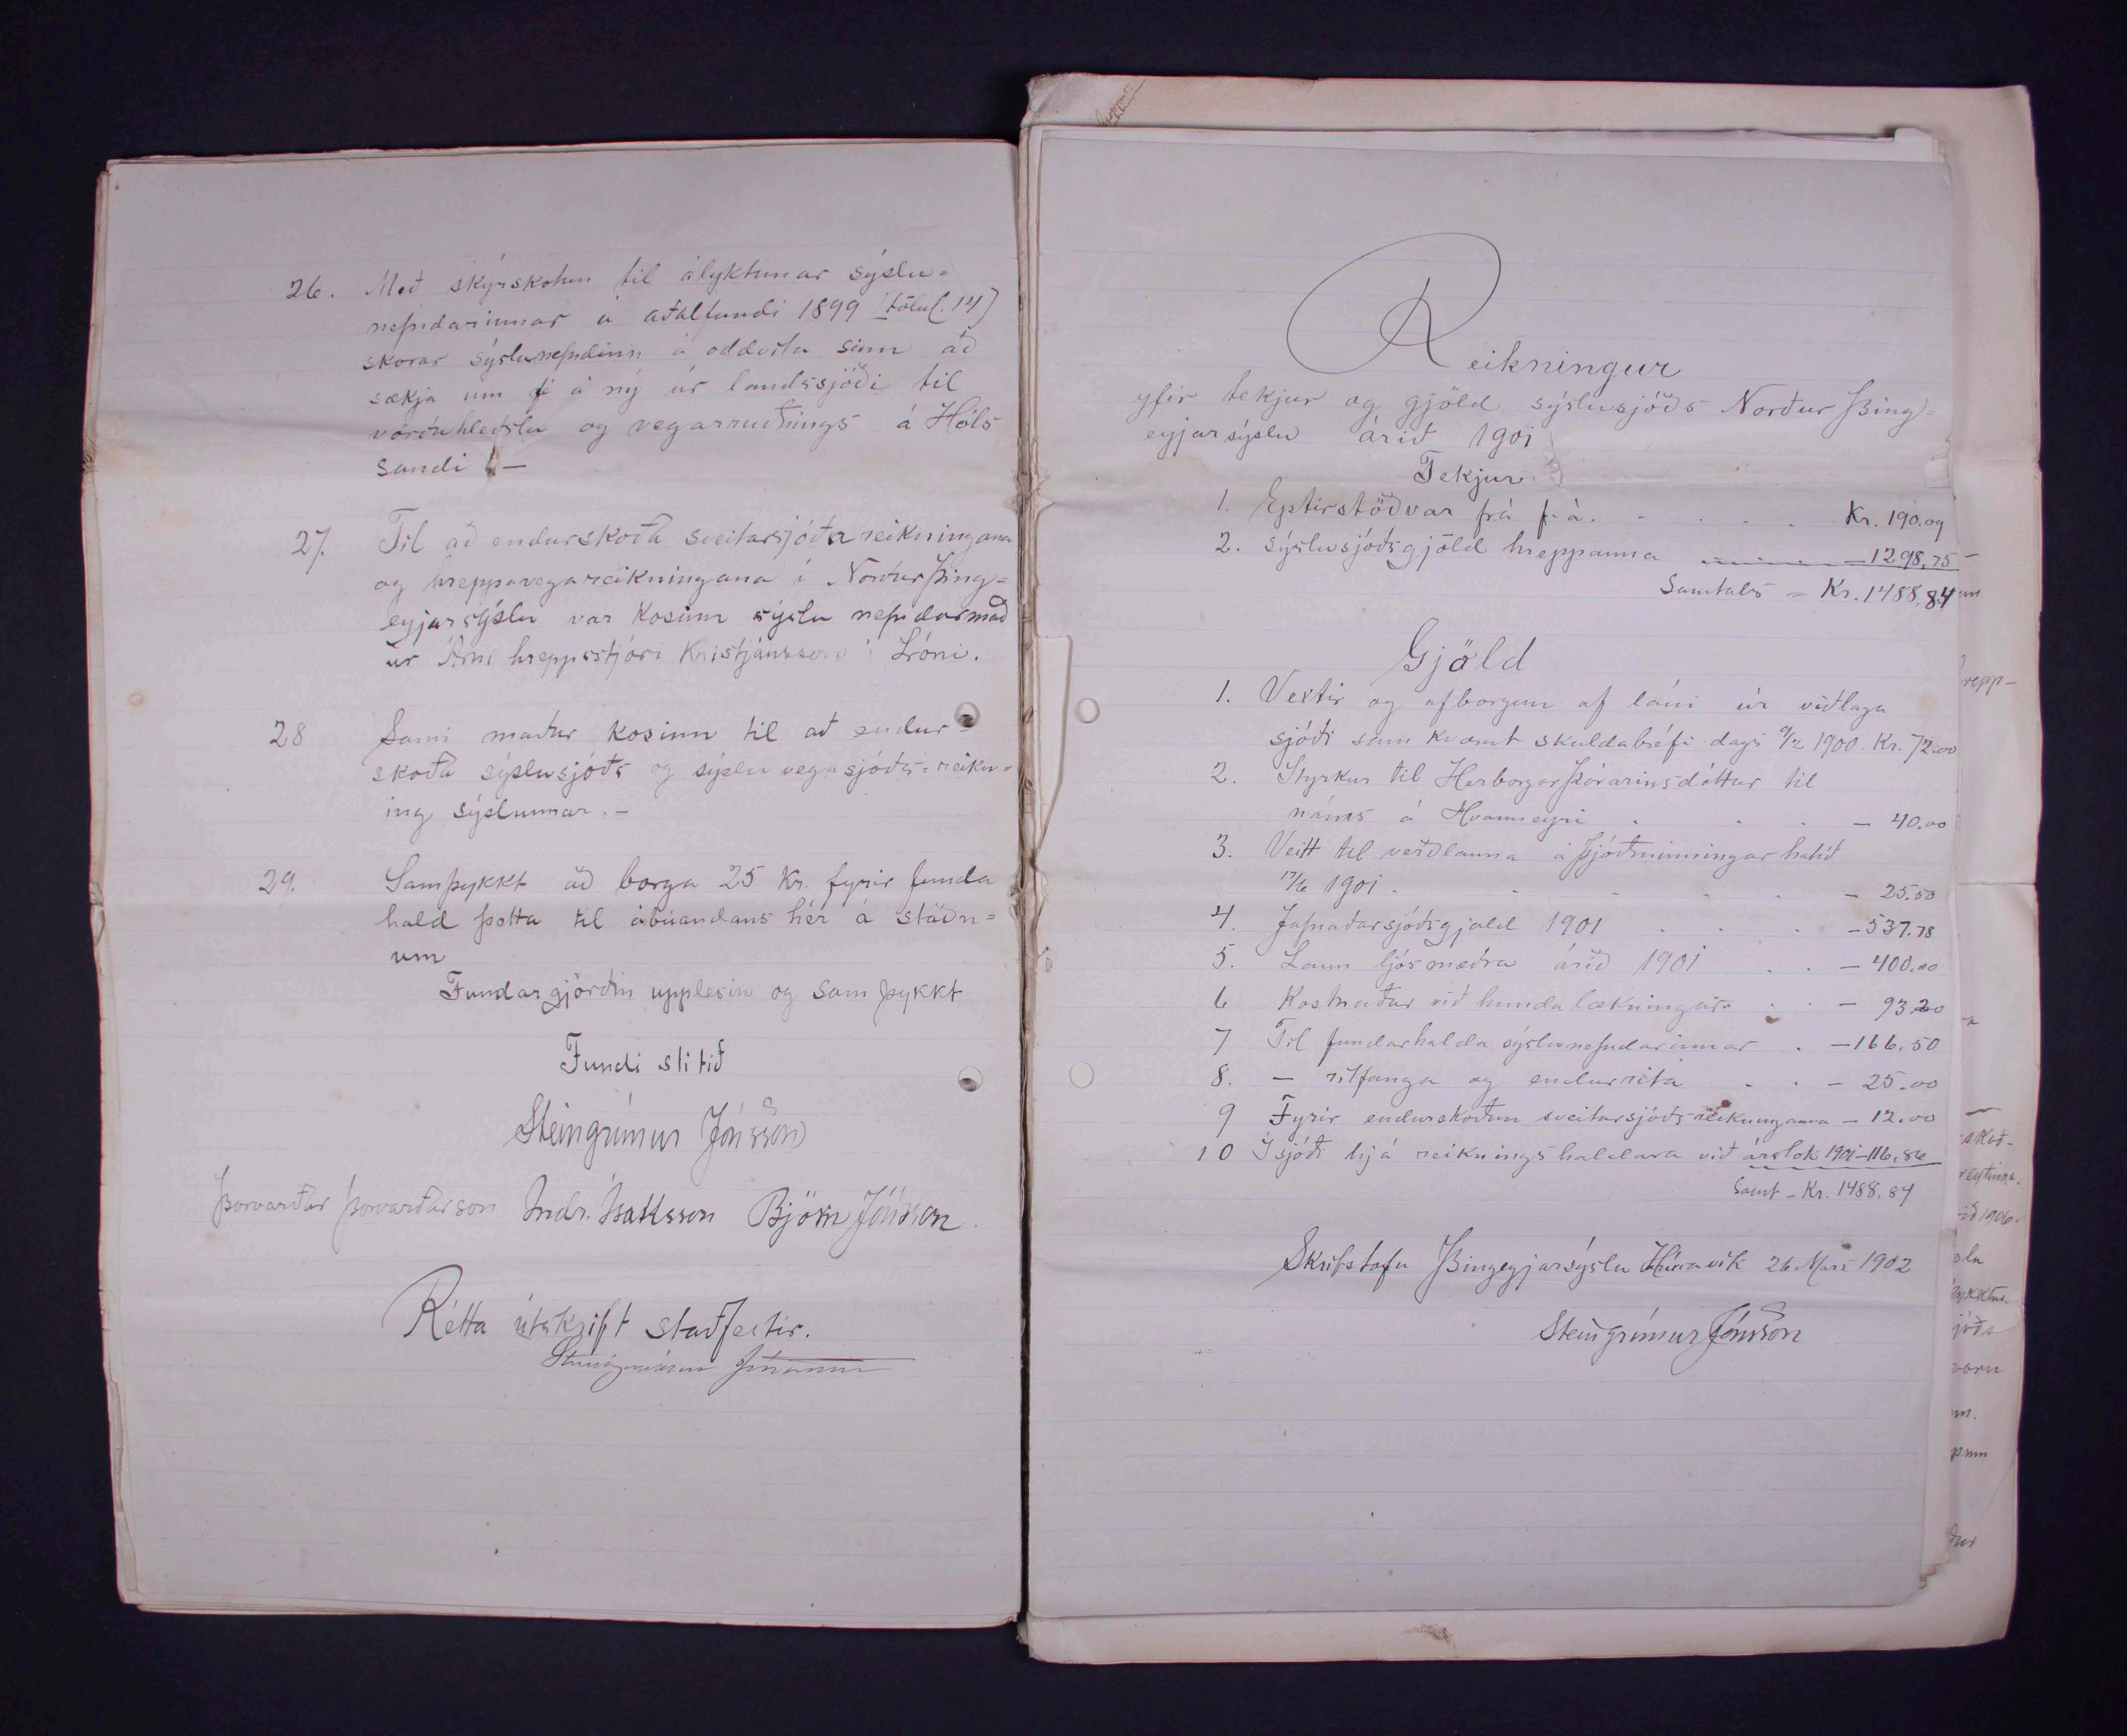 26. Með skýrskotun til ályktunar sýslu=
nefndarinnar á aðalfundi 1899 (tölul. 14)
skorar sýslunefndin á oddvita sinn að
sækja um fé á ný úr landssjóði til
vörðuhleðslu og vegarruðnings á Hóls
sandi. –
27. Til að endurskoða sveitarsjóða reikningana
og hreppavegareikningana í Norður Þing=
eyjarsýslu var kosinn sýslu nefndarmað
ur Árni hreppstjóri Kristjánsson í Lóni.
28 Sami maður kosinn til að endur=
skoða sýslusjóðs og sýslu vegasjóðs=reikn=
ing sýslunnar. –
29. Samþykkt að borga 25 Kr. fyrir funda
hald þetta til ábúandans hér á staðn=
um
Fundargjörðin upplesin og samþykkt
Fundi slitið
Steingrímur Jónsson
Þorvarður Þorvarðarson Indr. Ísaksson Björn Jónsson.
Rétta útskrift staðfestir.
Steingrímur Jónsson
Reikningur
yfir tekjur og gjöld sýslusjóðs Norður Þing=
eyjarsýslu árið 1901
Tekjur
1. Eptirstöðvar frá f. á. . . . . . Kr. 190.09
2. Sýslusjóðsgjöld hreppanna – 1298,75
Samtals = Kr. 1488,84
Gjöld
1. Vextir og afborgun af láni úr viðlaga
sjóði sam kvæmt skuldabréfi dags 1900. Kr. 72.00
2. Styrkur til Herborgar Þórarinsdóttur til
náms á Hvanneyri . . . – 40.00
3. Veitt til verðlauna á þjóðminningar hátíð
17/6 1901. . . . . – 25.50
4. Jafnaðarsjóðsgjald 1901 . . . – 537.78
5. Laun ljósmæðra árið 1901 . . – 400.00
6 Kostnaður við hundalækningar . . – 93.20
7 Til fundarhalda sýslunefndarinnar . – 166.50
8. – ritfanga og endurrita . . – 25.00
9 Fyrir endurskoðun sveitarsjóðsreikninganna – 12.00
10 Í sjóði hjá reikningshaldara við árslok 1901 – 116,86
Samt = Kr. 1488.84
Skrifstofu Þingeyjarsýslu Húsavík 26 Mars 1902
Steingrímur Jónsson